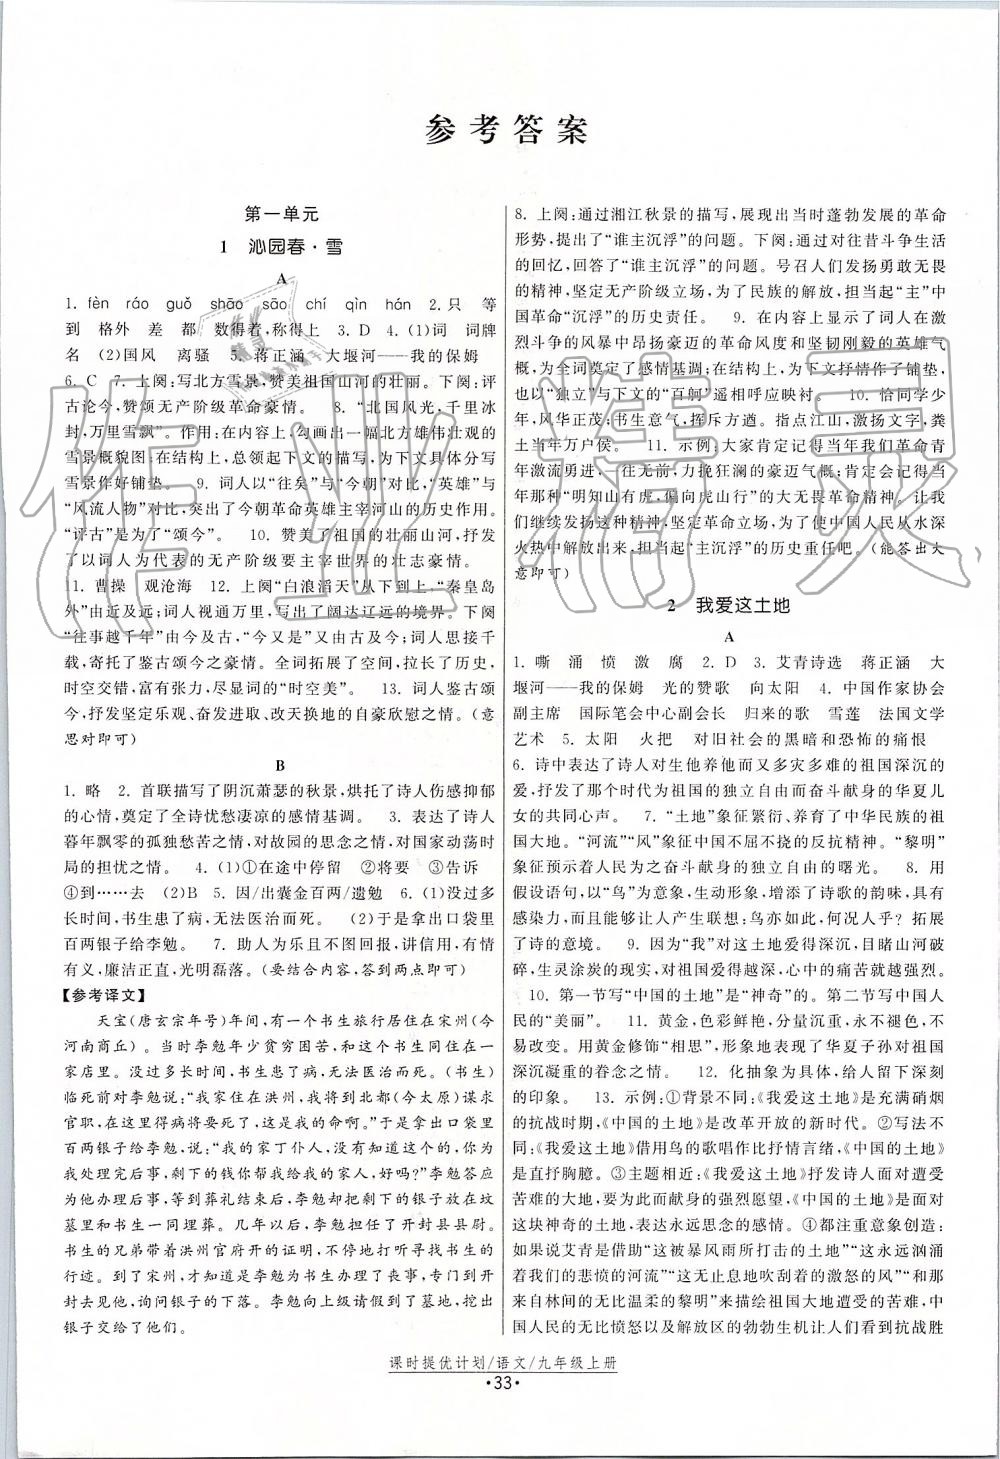 参考答案
第一单元
1 沁园春·雪
A
1. fèn ráo guǒ shāo sāo chí qìn hán 2. 只 等
到 格外 差 都 数得着,称得上 3. D 4. (1)词 词牌
名 (2)国风 离骚 5. 蒋正涵 大堰河——我的保姆
6. C 7. 上阕:写北方雪景,赞美祖国山河的壮丽。下阕:评
古论今,赞颂无产阶级革命豪情。 8. “北国风光,千里冰
封,万里雪飘”。作用:在内容上,勾画出一幅北方雄伟壮观的
雪景概貌图;在结构上,总领起下文的描写,为下文具体分写
雪景作好铺垫。 9. 词人以“往矣”与“今朝”对比,“英雄”与
“风流人物”对比,突出了今朝革命英雄主宰河山的历史作用。
“评古”是为了“颂今”。 10. 赞美了祖国的壮丽山河,抒发
了以词人为代表的无产阶级要主宰世界的壮志豪情。
11. 曹操 观沧海 12. 上阕“白浪滔天”从下到上,“秦皇岛
外”由近及远;词人视通万里,写出了阔达辽远的境界。下阕
“往事越千年”由今及古,“今又是”又由古到今;词人思接千
载,寄托了鉴古颂今之豪情。全词拓展了空间,拉长了历史,
时空交错,富有张力,尽显词的“时空美”。 13. 词人鉴古颂
今,抒发坚定乐观、奋发进取、改天换地的自豪欣慰之情。(意
思对即可)
B
1. 略 2. 首联描写了阴沉萧瑟的秋景,烘托了诗人伤感抑郁
的心情,奠定了全诗忧愁凄凉的感情基调。 3. 表达了诗人
暮年飘零的孤独愁苦之情,对故园的思念之情,对国家动荡时
局的担忧之情。 4. (1)①在途中停留 ②将要 ③告诉
④到……去 (2)B 5. 因/出囊金百两/遗勉 6. (1)没过多
长时间,书生患了病,无法医治而死。 (2)于是拿出口袋里
百两银子给李勉。 7. 助人为乐且不图回报,讲信用,有情
有义,廉洁正直,光明磊落。(要结合内容,答到两点即可)
【参考译文】
天宝(唐玄宗年号)年间,有一个书生旅行居住在宋州(今
河南商丘)。当时李勉年少贫穷困苦,和这个书生同住在一
家店里。没过多长时间,书生患了病,无法医治而死。(书生)
临死前对李勉说:“我家住在洪州,我将到北都(今太原)谋求
官职,在这里得病将要死了,这是我的命啊。”于是拿出口袋里
百两银子给李勉,说:“我的家丁仆人,没有知道这个的,你为
我处理完后事,剩下的钱你帮我给我的家人,好吗?”李勉答应
为他办理后事,等到葬礼结束后,李勉和将剩下的银子放在坟
墓里和书生一同埋葬。几年以后,李勉担任了开封县县尉。
书生的兄弟带着洪州官府开的证明,不停地打听寻找书生的
行迹。到了宋州,才知道是李勉为书生办理了丧事,专门到开
封去见他,询问银子的下落。李勉向上级请假到了墓地,挖出
银子交给了他们。
8. 上阕:通过湘江秋景的描写,展现出当时蓬勃发展的革命
形势,提出了“谁主沉浮”的问题。下阕:通过对往昔斗争生活
的回忆,回答了“谁主沉浮”的问题。号召人们发扬勇敢无畏
的精神,坚定无产阶级立场,为了民族的解放,担当起“主”中
国革命“沉浮”的历史责任。 9. 在内容上显示了词人在激
烈斗争的风暴中昂扬豪迈的革命风度和坚韧刚毅的英雄气
概,为全词奠定了感情基调;在结构上,为下文抒情作了铺垫,
也以“独立”与下文的“百舸”遥相呼应映衬。 10. 恰同学少
年,风华正茂;书生意气,挥斥方遒。指点江山,激扬文字,粪
土当年万户侯。 11. 示例:大家肯定记得当年我们革命青
年激流勇进、一往无前,力挽狂澜的豪迈气概;肯定会记得当
年那种“明知山有虎,偏向虎山行”的大无畏革命精神。让我
们继续发扬这种精神,坚定革命立场,为了使中国人民从水深
火热中解放出来,担当起“主沉浮”的历史重任吧。(能答出大
意即可)
2 我爱这土地
A
1. 嘶 涌 愤 激 腐 2. D 3. 艾青诗选 蒋正涵 大
堰河——我的保姆 光的赞歌 向太阳 4. 中国作家协会
副主席 国际笔会中心副会长 归来的歌 雪莲 法国文学
艺术 5. 太阳 火把 对旧社会的黑暗和恐怖的痛恨
6. 诗中表达了诗人对生他养他而又多灾多难的祖国深沉的
爱,抒发了那个时代为祖国的独立自由而奋斗献身的华夏儿
女的共同心声。 7. “土地”象征繁衍、养育了中华民族的祖
国大地。“河流”“风”象征中国人民不屈不挠的反抗精神。“黎明”
象征预示着人民为之奋斗献身的独立自由的曙光。 8. 用
假设语句,以“鸟”为意象,生动形象,增添了诗歌的韵味,具有
感染力,而且能够让人产生联想:鸟亦如此,何况人乎?拓展
了诗的意境。 9. 因为“我”对这土地爱得深沉,目睹山河破
碎,生灵涂炭的现实,对祖国爱得越深,心中的痛苦就越强烈。
10. 第一节写“中国的土地”是“神奇”的。第二节写中国人民
的“美丽”。 11. 黄金,色彩鲜艳,分量沉重,永不褪色,不
易改变。用黄金修饰“相思”,形象地表现了华夏子孙对祖国
深沉凝重的眷念之情。 12. 化抽象为具体,给人留下深刻
的印象。 13. 示例:①背景不同:《我爱这土地》是充满硝烟
的抗战时期,《中国的土地》是改革开放的新时代。②写法不
同:《我爱这土地》借用鸟的歌唱作比抒情言绪,《中国的土地》
是直抒胸臆。③主题相近:《我爱这土地》抒发诗人面对遭受
苦难的大地,要为此而献身的强烈愿望,《中国的土地》是面对
这块神奇的土地,表达永远思念的感情。④都注重意象创造:
如果说艾青是借助“这被暴风雨所打击的土地”“这永远汹涌
着我们的悲愤的河流”“这无止息地吹刮着的激怒的风”“和那
来自林间的无比温柔的黎明”来描绘祖国大地遭受的苦难,中
国人民的无比愤怒以及解放区的勃勃生机让人们看到抗战胜
课时提优计划/语文/九年级上册
·33·
作业精灵